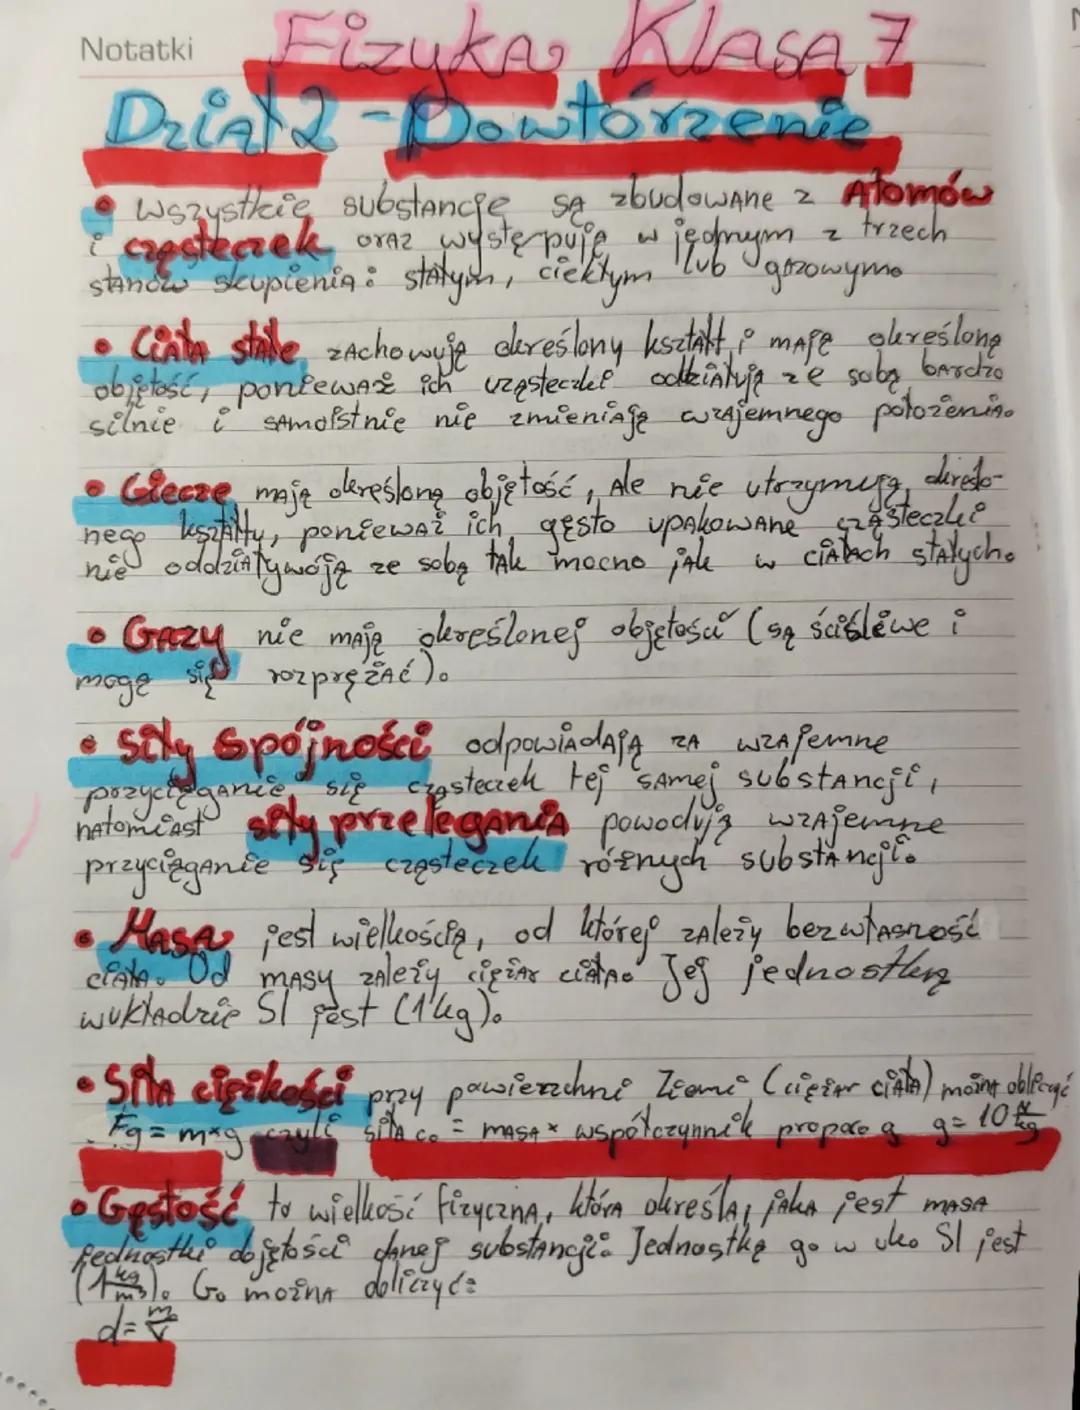 Notatki
Fizyka Klasa 7
Dział 2 - Powtórzenie
• Wszystkie substancje są zbudowane z Atomów
i cząsteczek oraz występują w jednym z trzech
stanów skupienia: stałym, ciekłym lub gazowym.
• Ciała stałe zachowują określony kształt i mają określoną
objętość, ponieważ ich cząsteczki oddziałują ze sobą bardzo
silnie i samoistnie nie zmieniają wzajemnego położenia.
• Ciecze mają określoną objętość, ale nie utrzymują określo-
nego kształtu, ponieważ ich gęsto upakowane cząsteczki
nie oddziaływóją ze sobą tak mocno jak w ciałach stałych.
• Gazy nie mają określonej objętości (są ściśliwe i
mogą się rozprężać).
• Siły Spójności odpowiadają za wzajemne
przyciąganie się cząsteczek tej samej substancji,
natomiast siły przylegania powodują wzajemne
przyciąganie się cząsteczek różnych substancji.
• Masa jest wielkością, od której zależy bezwładność
ciała. Od masy zależy ciężar ciała. Jej jednostką
w układzie SI jest (1 kg).
• Siła ciężkości przy powierzchni Ziemi (ciężar ciała) można obliczyć
Fg = m×g czyli siła c. = masa × współczynnik propor. g g = 10 N/kg
• Gęstość to wielkość fizyczna, która określa, jaka jest masa
jednostki objętości danej substancji. Jednostką gę w ukł. SI jest
(1 kg/m³). G. można obliczyć:
d = m/V